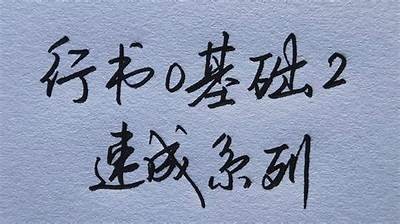 行书0基础2
速成系列